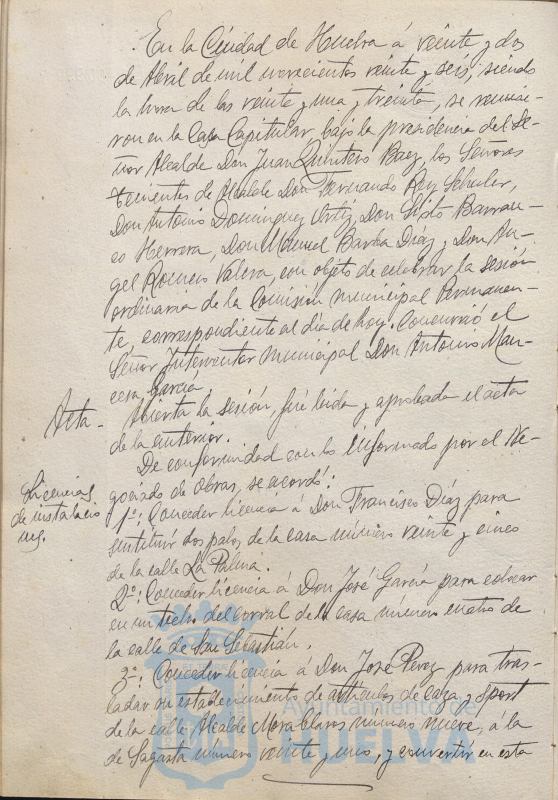 En la Ciudad de Huelva á veinte y dos
de Abril de mil novecientos veinte y seis, siendo
la hora de las veinte y una y treinta, se reunie-
ron en la Casa Capitular, bajo la presidencia del Se-
ñor Alcalde Don Juan Quintero Baez, los Señores
tenientes de Alcalde Don Fernando Rey Schuler,
Don Antonio Dominguez Ortiz, Don Sixto Barran-
co Herrera, Don Manuel Barba Díaz y Don An-
gel Romero Valera, con objeto de celebrar la sesión
ordinaria de la Comisión Municipal Permanen-
te, correspondiente al dia de hoy. Concurrió el
Señor Interventor municipal Don Antonio Man-
cera García.
Acta.- Abierta la sesión, fué leida y aprobada el acta
de la anterior.
De conformidad con lo informado por el Ne-
gociado de Obras, se acordó:
Licencias
de instalacio
nes.
1º: Conceder licencia á Don Francisco Díaz para
sustituir dos palos de la casa número veinte y cinco
de la calle La Palma.
2º: Conceder licencia á Don José García para colocar
en un techo del corral de la casa numero cuatro de
la calle de San Sebastián.
3º: Conceder licencia á Don José Perez para tras-
ladar su establecimiento de artículos de caza y Sport
de la calle Alcalde Mora Claros número nueve, á la
de Sagasta número veinte y uno, y convertir en esta
Ayuntamiento de
HUELVA